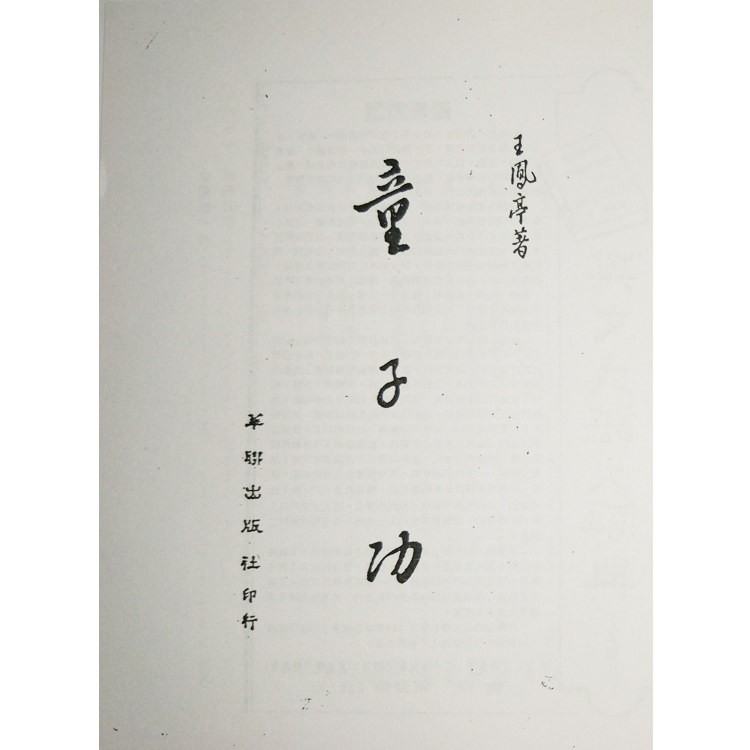 王鳳亭著
童子功
華聯出版社印行